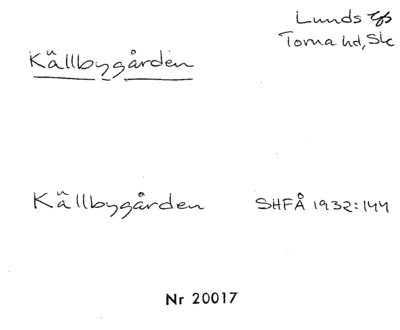 Lunds lfs
Torna hd, Sk
Källbygården
Källbygården SHFÅ 1932:144
Nr 20017